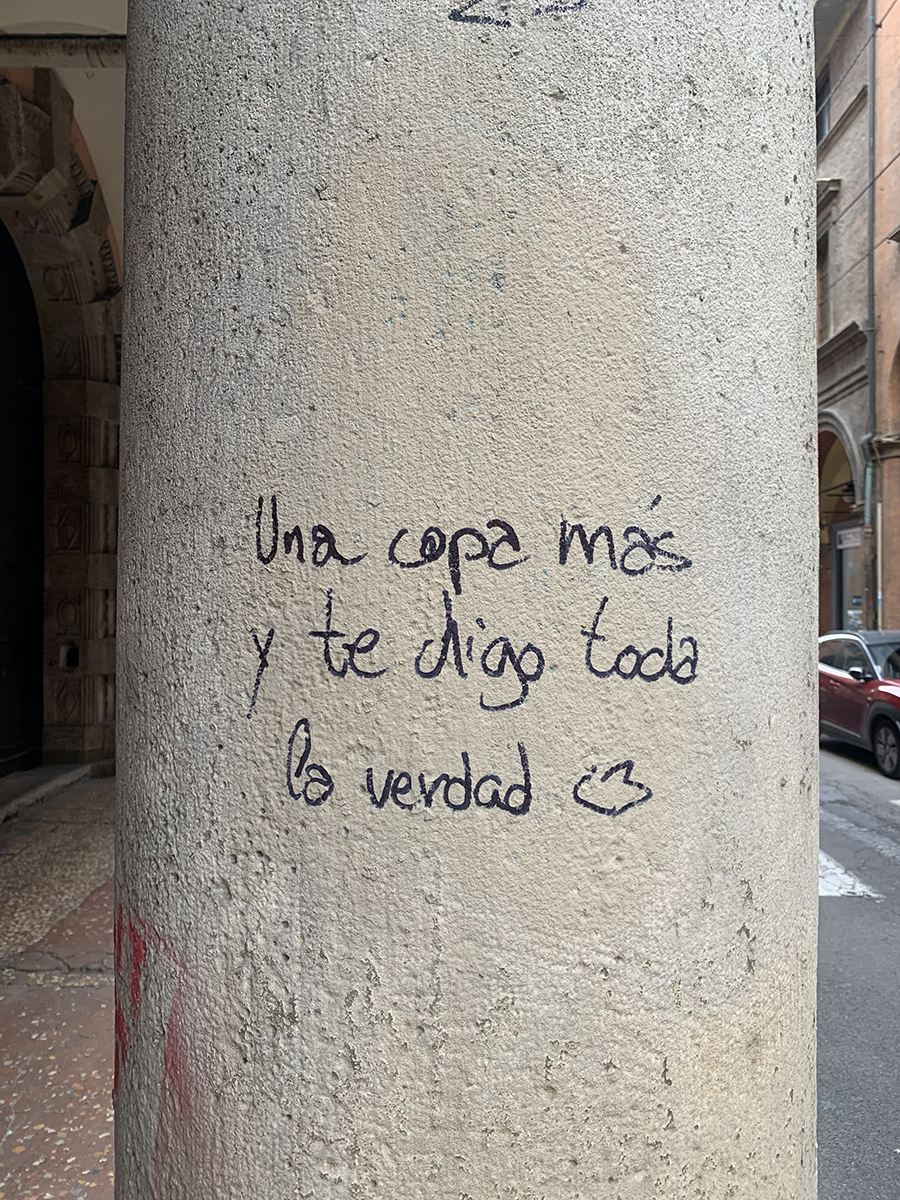 Una copa más
y te digo toda
la verdad